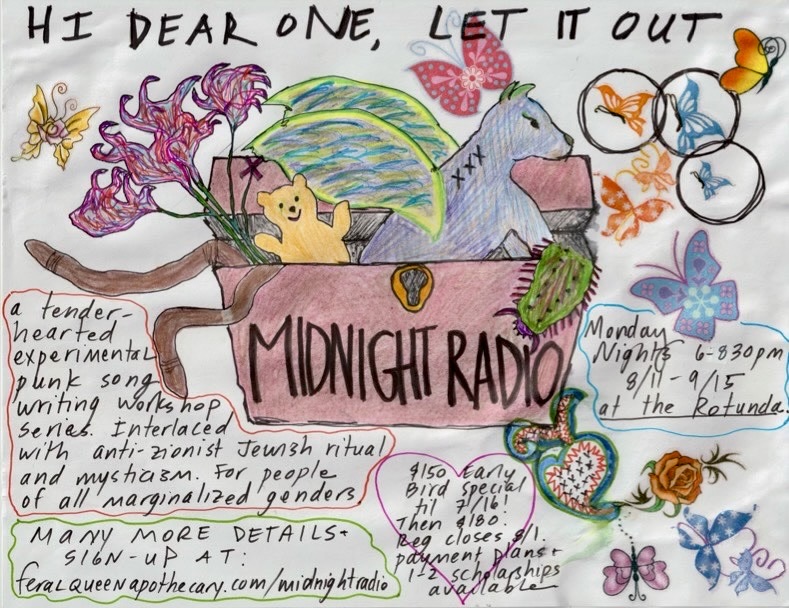 HI DEAR ONE, LET IT OUT
MIDNIGHT RADIO
a tender-
hearted
experimental
punk song
writing workshop
series. Interlaced
with anti-zionist Jewish ritual
and mysticism. For people
of all marginalized genders.
Monday
Nights 6-830pm
8/11 - 9/15
at the Rotunda.
$150 Early
Bird special
til 7/16!
Then $180.
Reg closes 8/1.
payment plans +
1-2 scholarships
available
MANY MORE DETAILS +
SIGN-UP AT:
feralqueenapothecary.com/midnightradio